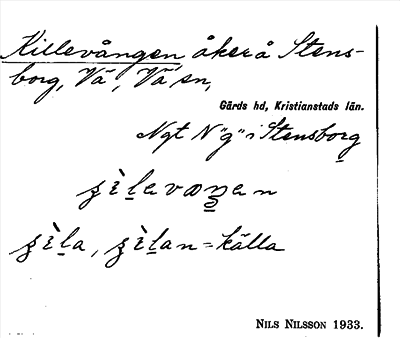 Killevången åker å Stens-
borg, Vä, Vä sn,
Gärds hd, Kristianstads län.
Ngt N "g" i Stensborg
källa
NILS NILSSON 1933.